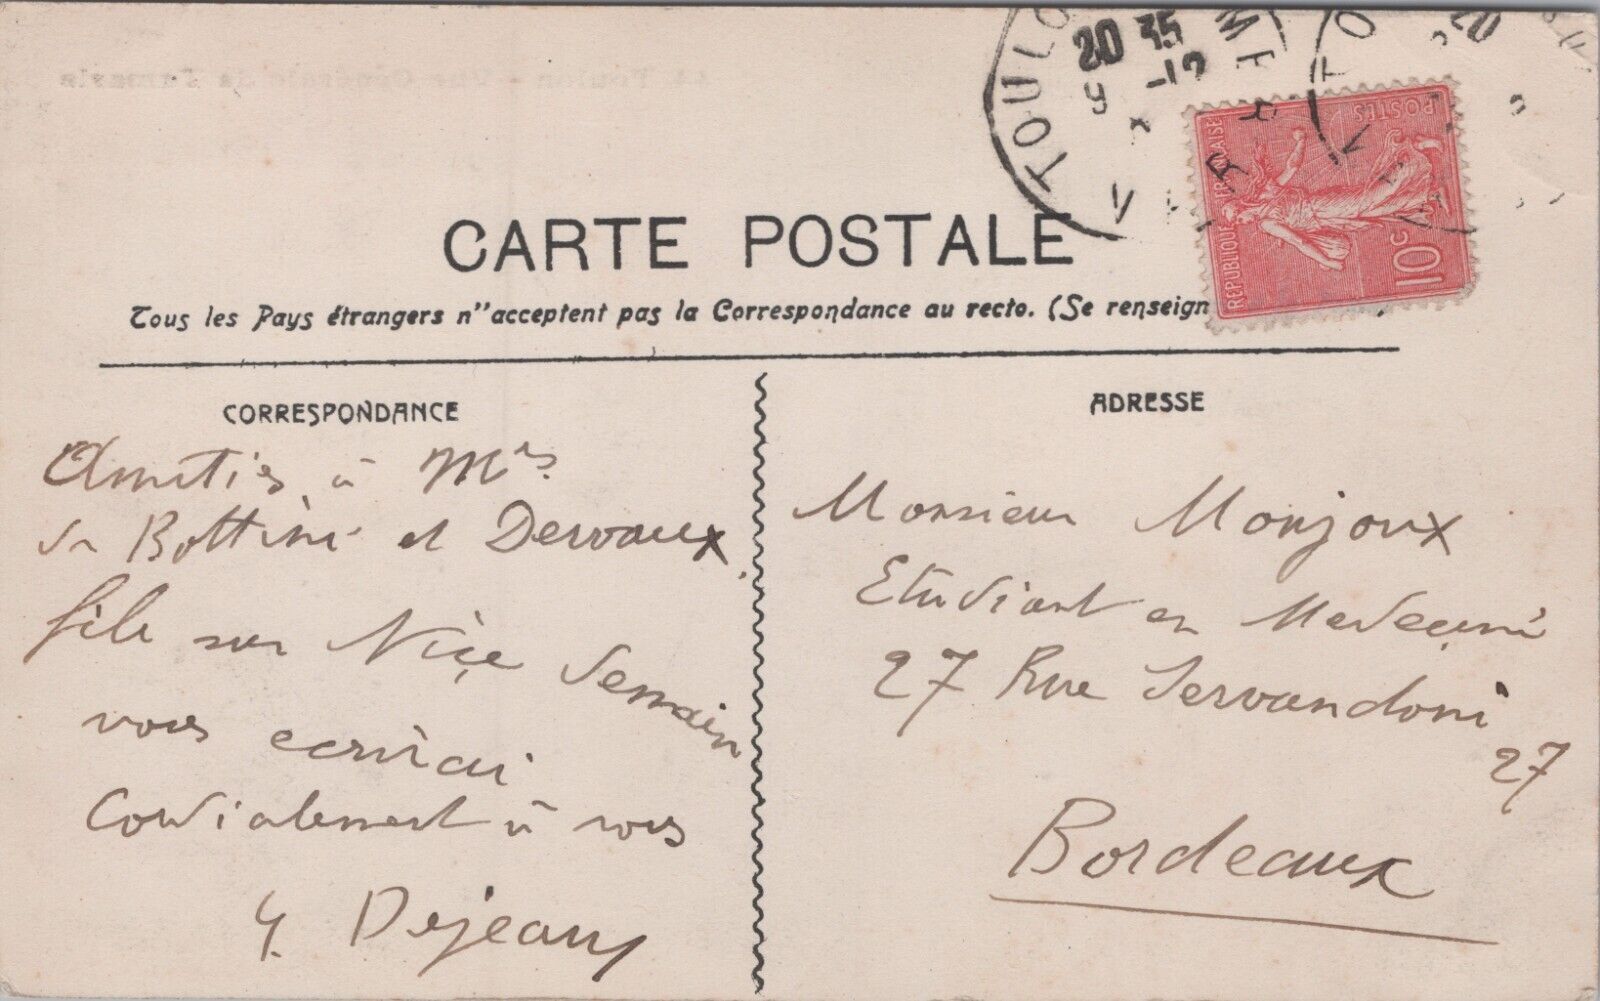 TOULON
VAR
20 35
9 -12
REPUBLIQUE FRANÇAISE
POSTES
10c
CARTE POSTALE
Tous les Pays étrangers n"acceptent pas la Correspondance au recto. (Se renseign
CORRESPONDANCE
ADRESSE
Amitiés à Mrs
de Bottini et Dervaux.
file sur Niçe Demain
vous ecrirai
Cordialement à vous
Y. Dejeans
Monsieur Monjoux
Etudiant en Medeçine
27 Rue Servandoni
27
Bordeaux